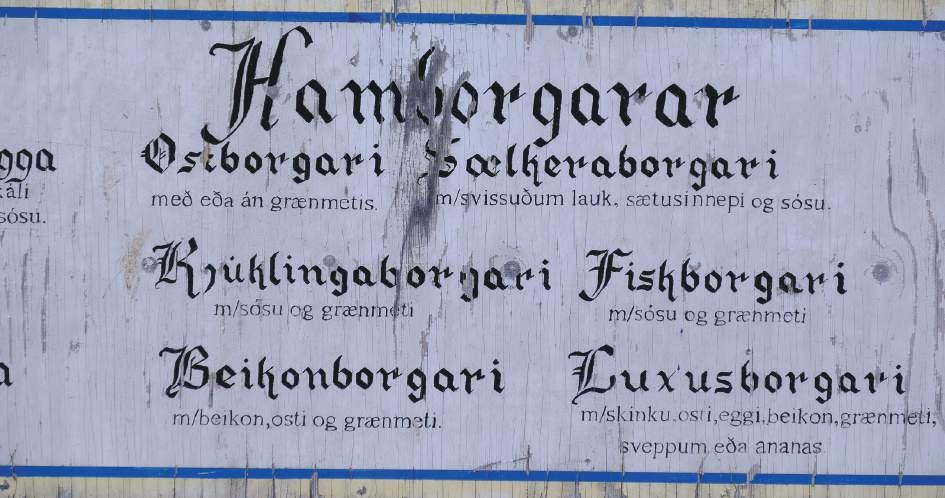 Hamborgarar
Ostborgari
með eða án grænmetis.
Sælkeraborgari
m/svissuðum lauk, sætusinnepi og sósu.
Kjúklingaborgari
m/sósu og grænmeti
Fiskborgari
m/sósu og grænmeti
Beikonborgari
m/beikon,osti og grænmeti.
Luxusborgari
m/skinku,osti,eggi,beikon,grænmeti,
sveppum eða ananas
gga
káli
sósu.
a